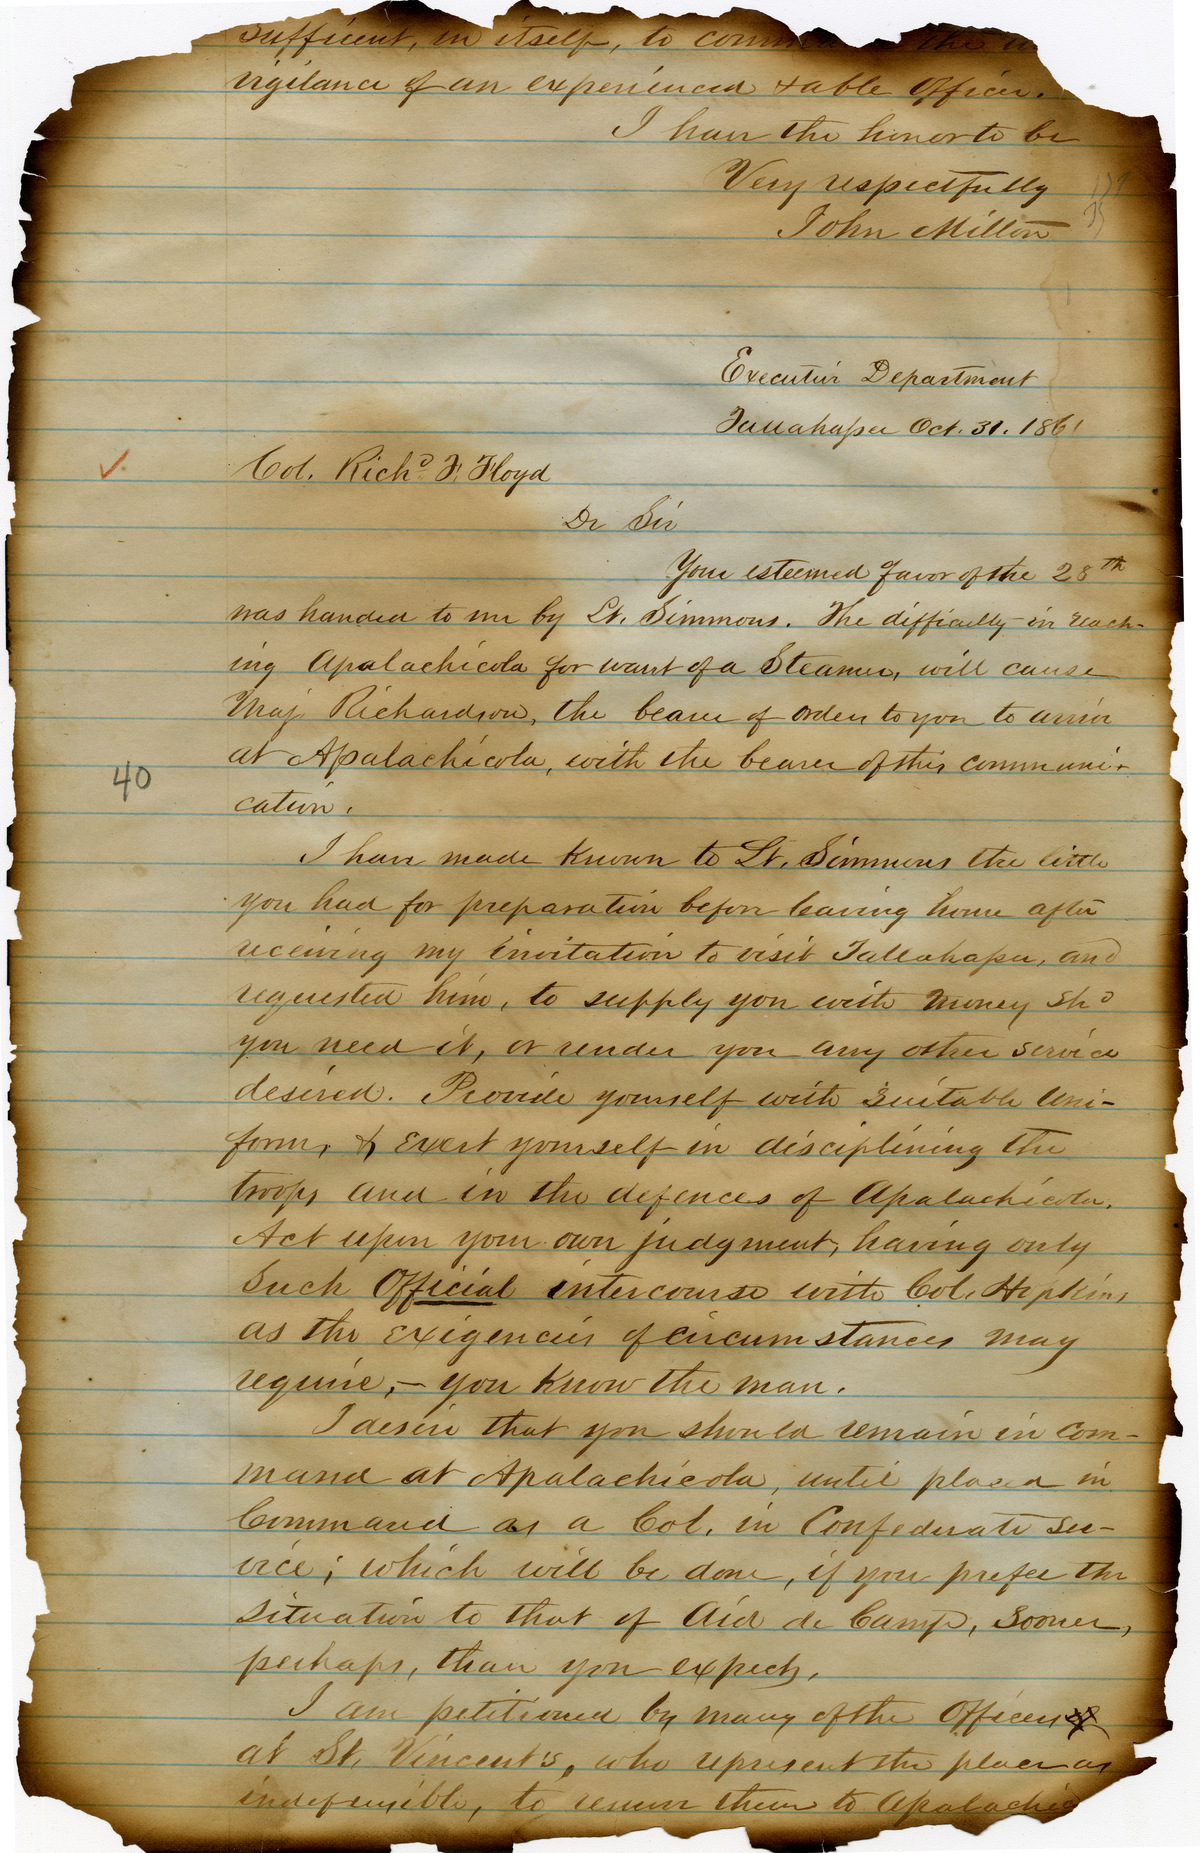 sufficient, in itself, to comm the
vigilance of an experienced & able Officer.
I have the honor to be
Very respectfully
John Milton
Executive Department
Tallahassee Oct. 31. 1861
Col. Richd F. Floyd
Dr Sir
Your esteemed favor of the 28th
was handed to me by Lt. Simmons. The difficulty in reach-
ing Apalachicola for want of a Steamer, will cause
Maj. Richardson, the bearer of orders to you to arrive
at Apalachicola, with the bearer of this communi-
cation.
40
I have made known to Lt. Simmons the little
you had for preparation before leaving home after
receiving my invitation to visit Tallahassee, and
requested him, to supply you with money shd
you need it, or render you any other service
desired. Provide yourself with suitable Uni-
form, & exert yourself in disciplining the
troops and in the defences of Apalachicola.
Act upon your own judgment, having only
such Official intercourse with Col. Hopkins
as the exigencies of circumstances may
require, — you know the man.
I desire that you should remain in com-
mand at Apalachicola, until placed in
Command as a Col. in Confederate ser-
vice; which will be done, if you prefer the
situation to that of Aid de Camp, sooner,
perhaps, than you expect.
I am petitioned by many of the Officers
at St. Vincent's, who represent the place as
indefensible, to remove them to Apalachic